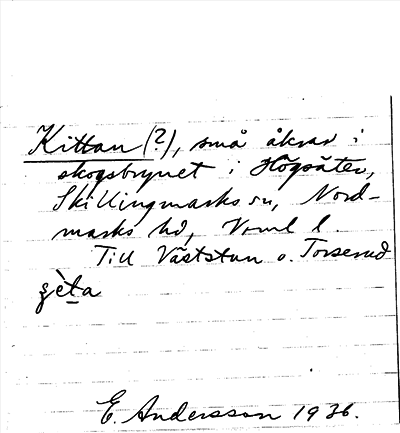 Kittan (?), små åkrar i
skogsbrynet i Högsäter,
Skillingmarks sn, Nord-
marks hd, Vrml l.
Till Väststan o. Torserud
ʂè̱ta
E. Andersson 1936.